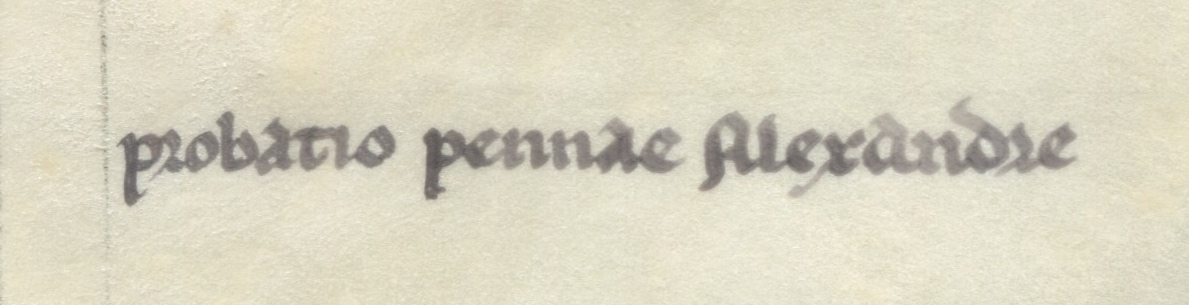 probatio pennae Alexandre